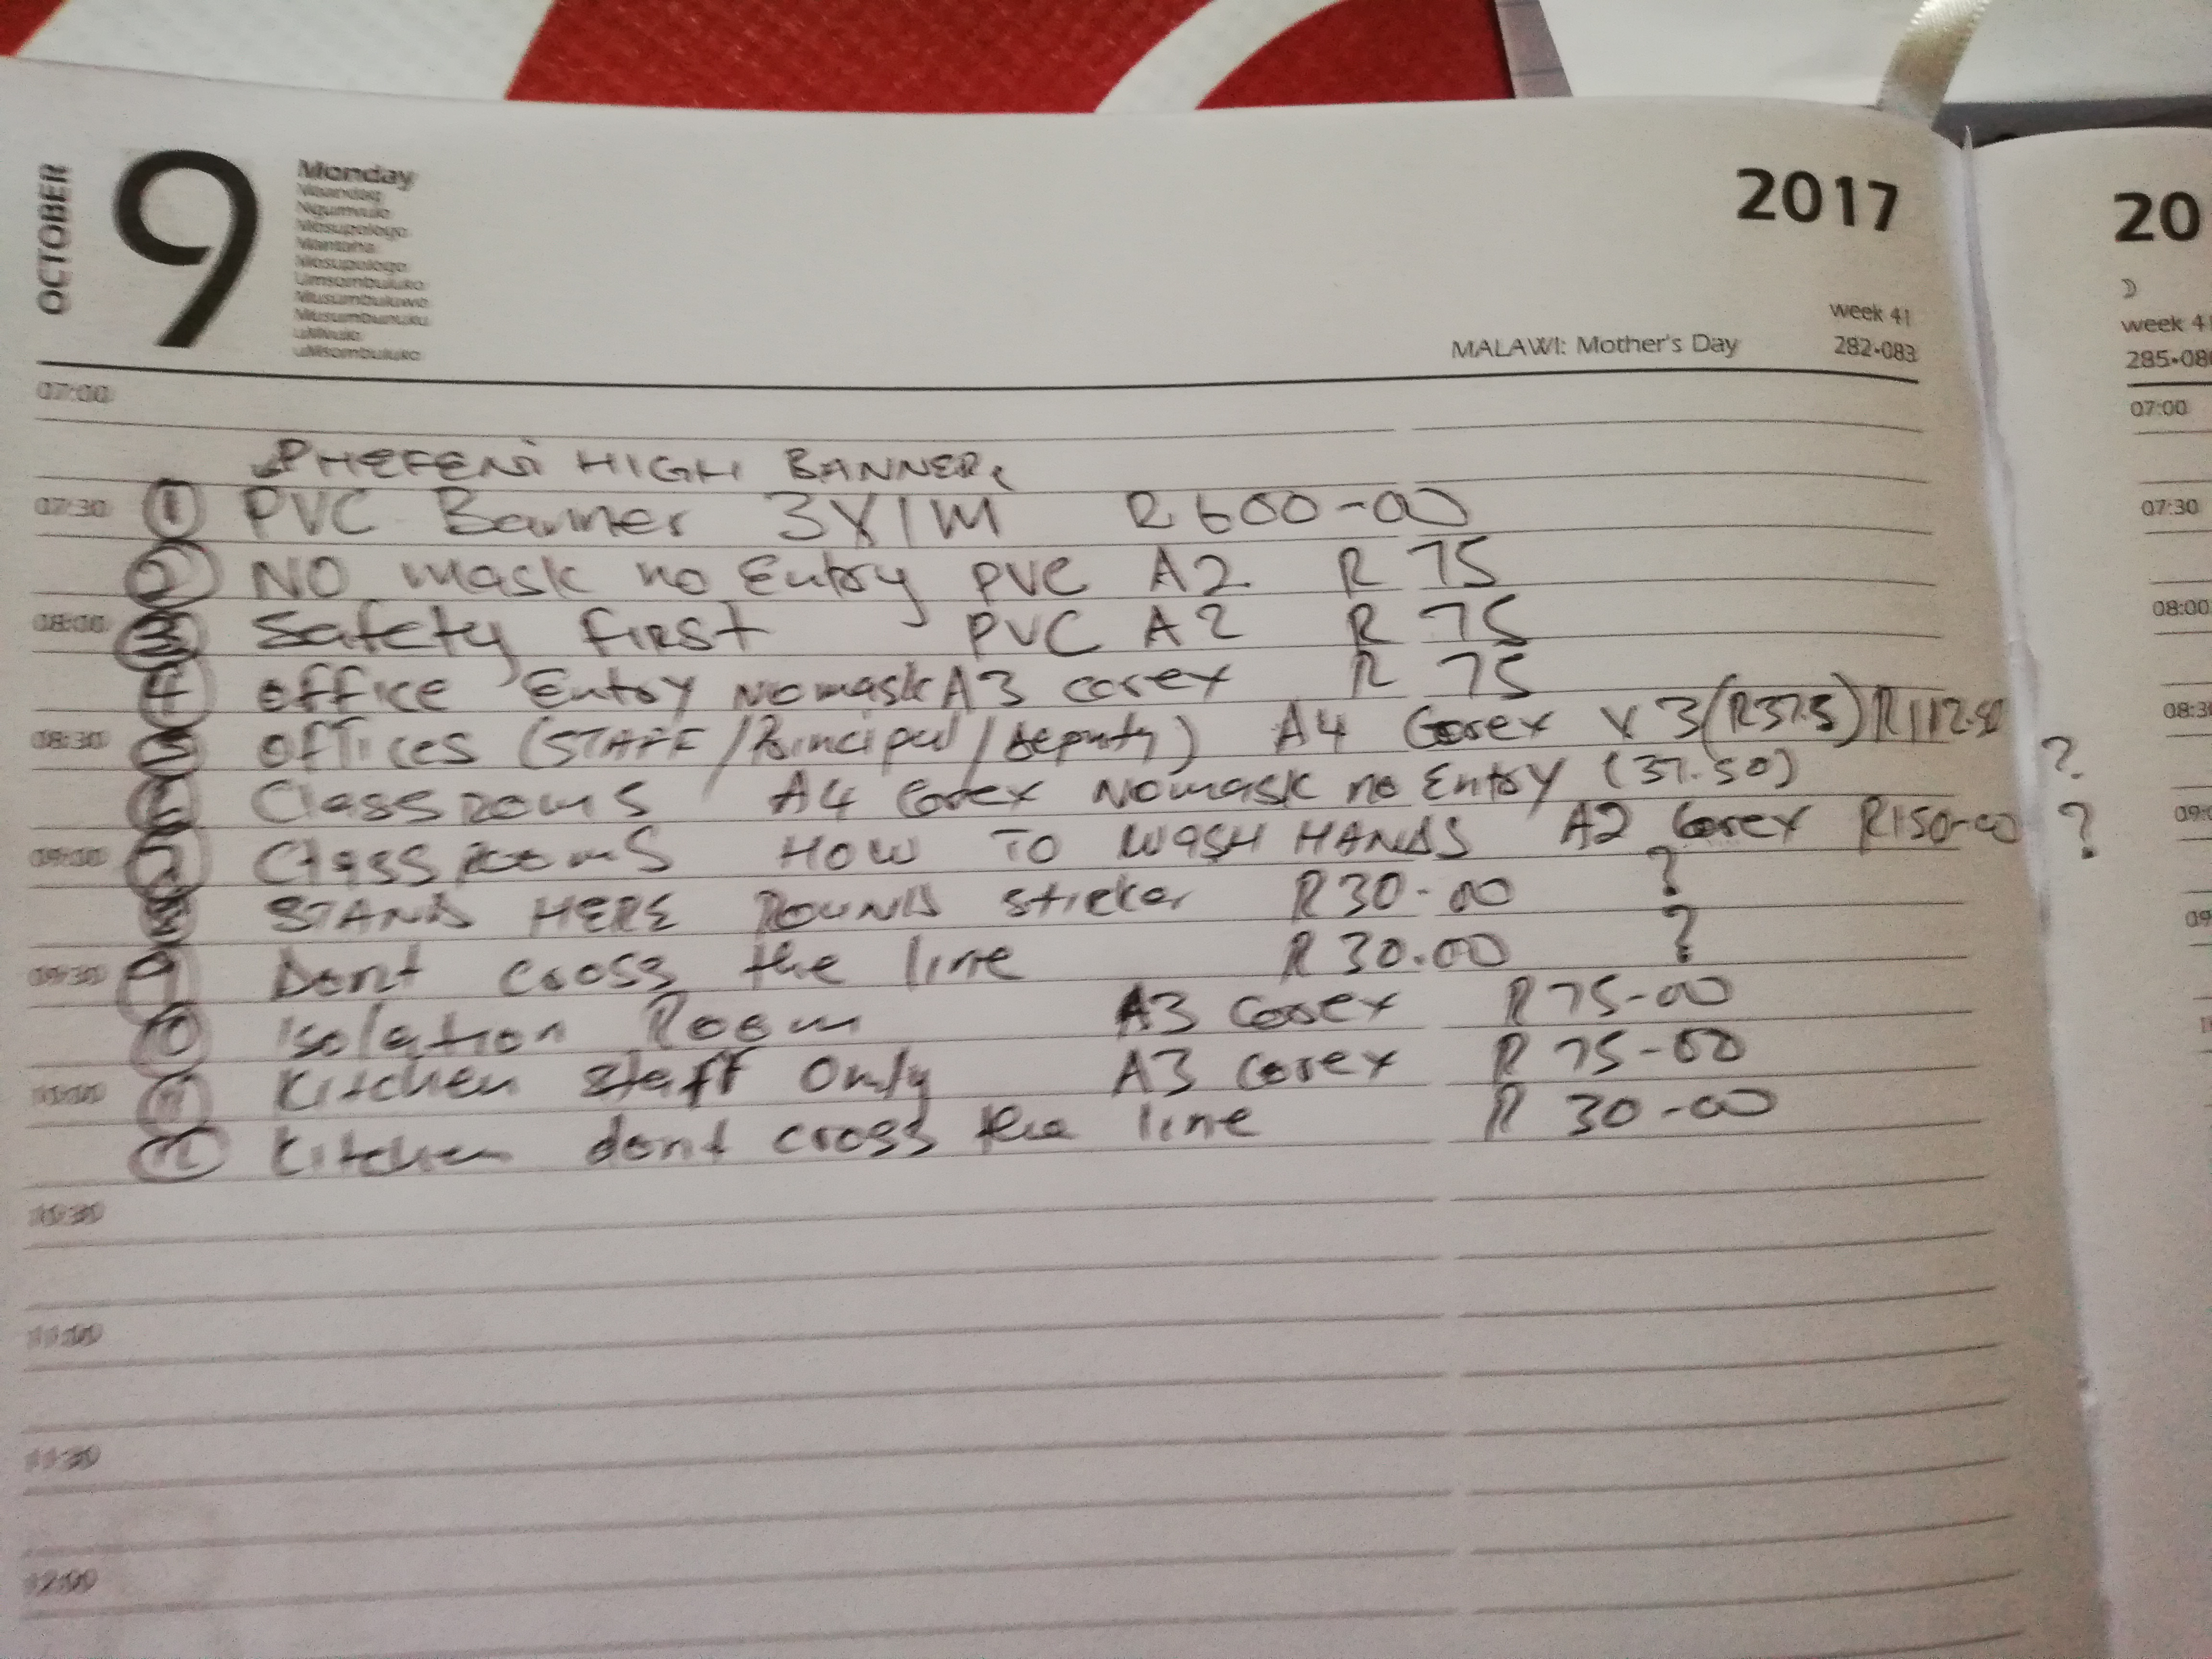 OCTOBER
9
Monday
2017
20
week 41
MALAWI: Mother's Day
282-083
week 41
07:00
07:00
PHEFENI HIGH BANNER
07:30
07:30
① PVC Banner 3X1M R600-00
② NO mask no Entry PVC A2 R 75
08:00
08:00
③ Safety first PVC A2 R 75
④ office Entry No mask A3 corex R 75
08:30
offices (STAFF/Principal/deputy) A4 Corex X 3(R37.5) R112.50
Classrooms A4 Corex No mask no Entry (37.50) ?
09:00
⑦ Classrooms HOW TO WASH HANDS A2 Corex R150-00 ?
STAND HERE ROUND sticker R30-00 ?
09:30
⑨ Dont cross the line R 30.00 ?
⑩ Isolation Room A3 corex R75-00
10:00
⑪ Kitchen staff Only A3 corex R 75-00
⑫ Kitchen dont cross the line R 30-00
10:30
11:00
11:30
12:00